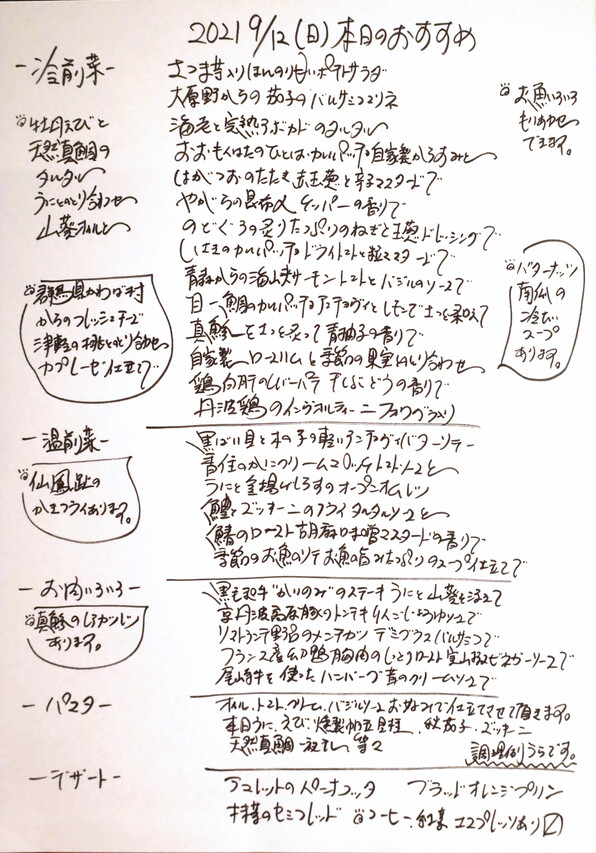 2021 9/12(日)本日のおすすめ
－冷前菜－
さつま芋入りほんのり甘いポテトサラダ
大原野からの茄子のバルサミコマリネ
海老と完熟アボカドのタルタル
自家製からすみと
はがつおのたたき 赤玉葱と辛子マスタードで
やがらの昆布〆 ケッパーの香りで
のどぐろの炙りたっぷりのねぎと玉葱ドレッシングで
カルパッチョドライトマトと粒マスタードで
青森からの海峡サーモントマトとバジルのソースで
目一鯛のカルパッチョアンチョヴィとレモンで
真鯵 青柚子の香りで
自家製ロースハムと季節の果実のとり合わせ
鶏白肝のレバーパテ 干しぶどうの香りで
丹波鶏のインヴォルティーニフォワグラ入り
牡丹えびと
天然真鯛の
タルタル
うにとのとり合わせ
山葵オイルと
群馬県かわば村
からのフレッシュチーズ
津軽の桃ととり合わせ
カプレーゼ仕立てで
お魚いろいろ
もりあわせ
できます。
バターナッツ
南瓜の
冷たい
スープ
あります。
－温前菜－
黒ばい貝と木の子の軽いアンチョヴィバターソテー
香住のかにクリームコロッケトマトソースと
うにと釜揚げしらすのオープンオムレツ
鱧とズッキーニのフライタルタルソースと
鰆のロースト胡麻味噌マスタードの香りで
季節のお魚のソテーお魚の旨みたっぷりのスープ仕立てで
仙鳳趾の
かきフライあります。
－お肉いろいろ－
黒毛和牛"かいのみ"のステーキ うにと山葵を添えて
京丹波高原豚のトンテキ りんごしょうゆソースで
リストランテ野呂のメンチカツ デミグラスバルサミコで
フランス産 鴨胸肉のしっとりロースト ビネガーソースで
尾崎牛を使ったハンバーグ 茸のクリームソースで
真鯵のレアカツレツ
あります。
－パスタ－
オイル、トマト、クリーム、バジルソースお好みで仕立てさせて頂きます。
本日うに、えび、燻製帆立貝柱、秋茄子、ズッキーニ
天然真鯛、 等々
調理例うらです。
－デザート－
アマレットのパンナコッタ ブラッドオレンジプリン
抹茶のセミフレッド コーヒー、紅茶 エスプレッソあり〼